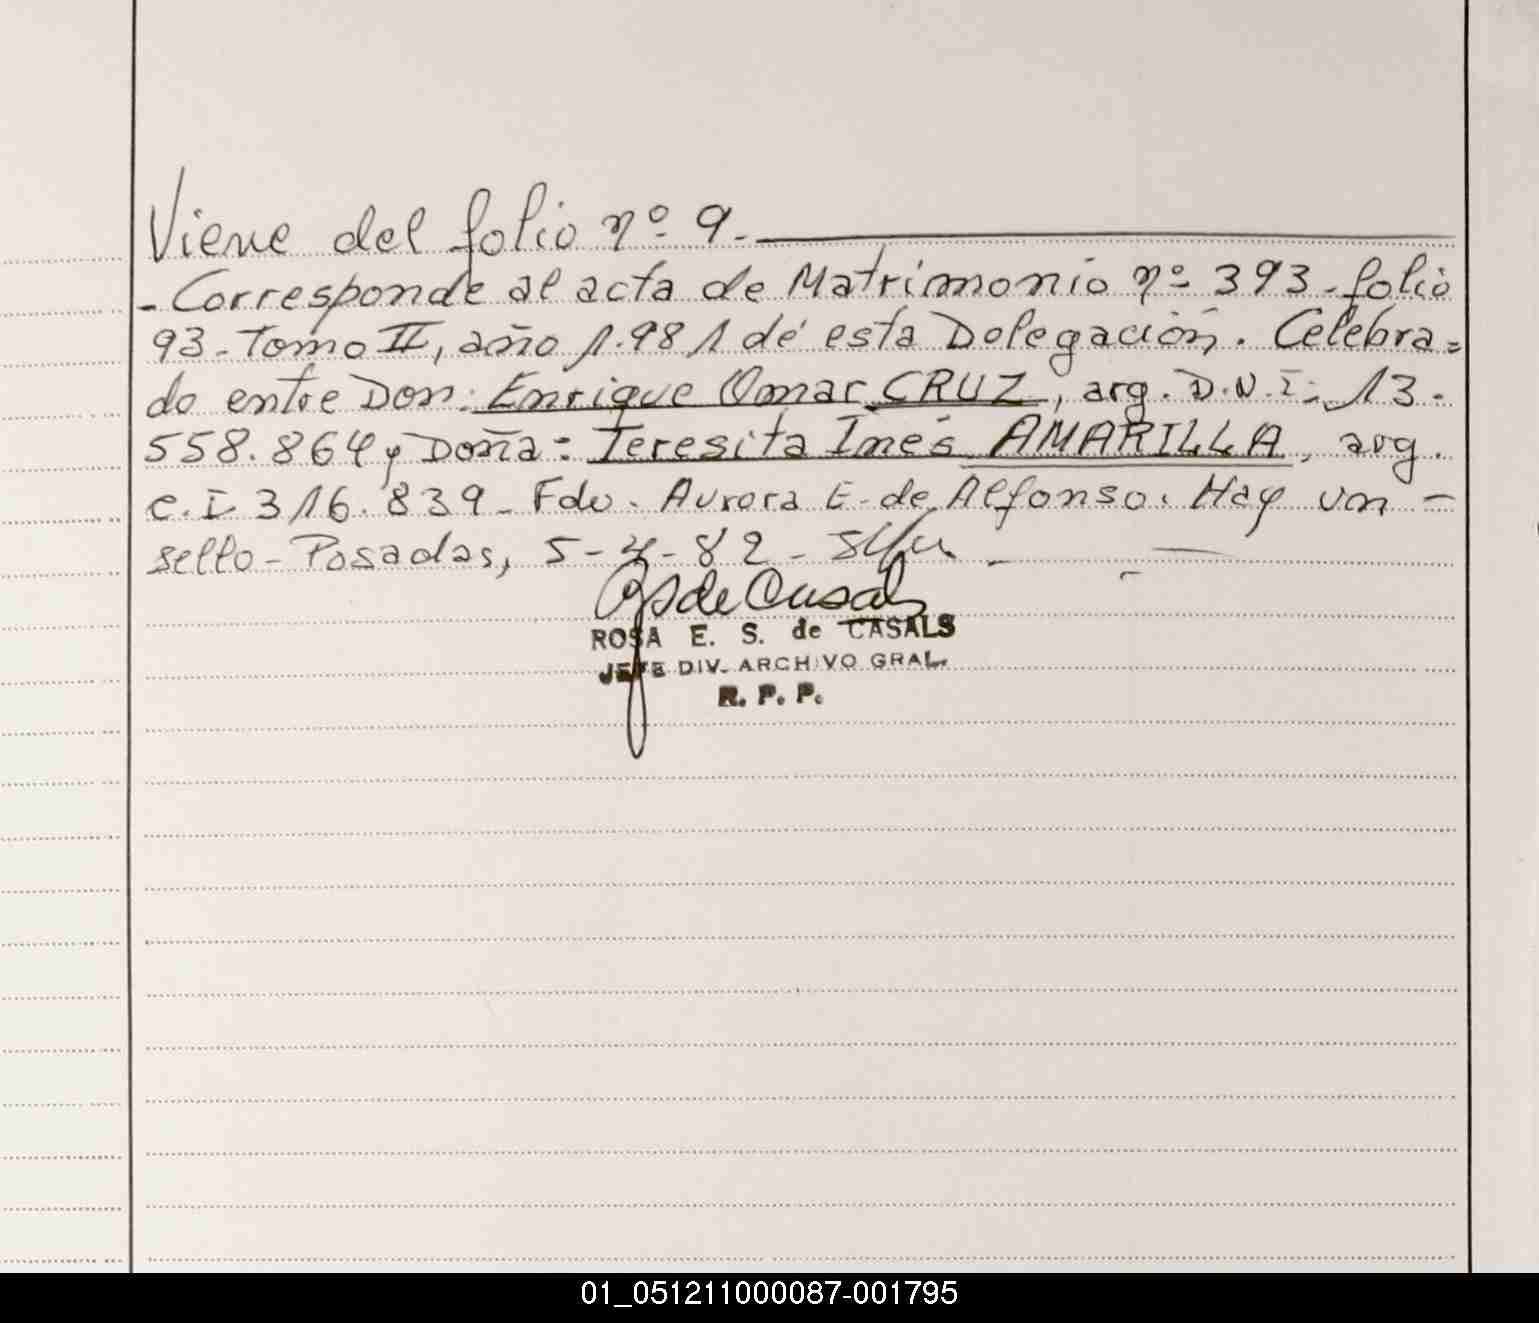 Viene del folio nº 9.
- Corresponde al acta de Matrimonio nº 393 - folio
93 - Tomo II, año 1.981 de esta Delegación. Celebra=
do entre Don: Enrique Omar CRUZ, arg. D.N.I: 13.
558.864 y Doña: Teresita Inés AMARILLA, arg.
C.I. 316.839 - Fdo. Aurora E. de Alfonso. Hay un -
sello - Posadas, 5-4-82 -
ROSA E. S. de CASALS
JEFE DIV. ARCHIVO GRAL.
R. P. P.
01_051211000087-001795